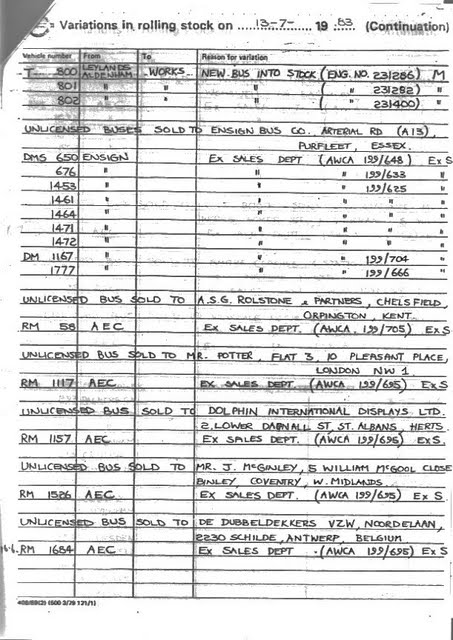 Variations in rolling stock on 13-7- 19 83 (Continuation)
Vehicle number From To Reason for variation
T 800 LEYLANDS ALDENHAM WORKS NEW BUS INTO STOCK (ENG. NO. 231286) M
801 " " " ( " 231282) "
802 " " " ( " 231400) "
UNLICENSED BUSES SOLD TO ENSIGN BUS CO. ARTERIAL RD (A13),
PURFLEET, ESSEX.
DMS 650 ENSIGN EX SALES DEPT (AWCA 199/648) EX S
676 " " " 199/633 "
1453 " " " 199/625 "
1461 " " " " "
1464 " " " " "
1471 " " " " "
1472 " " " " "
DM 1167 " " " 199/704 "
1777 " " " 199/666 "
UNLICENSED BUS SOLD TO A.S.G. ROLSTONE & PARTNERS, CHELSFIELD,
ORPINGTON, KENT.
RM 58 AEC EX SALES DEPT. (AWCA 199/705) EX S
UNLICENSED BUS SOLD TO MR. POTTER, FLAT 3, 10 PLEASANT PLACE,
LONDON NW 1.
RM 1117 AEC EX SALES DEPT. (AWCA 199/695) EX S
UNLICENSED BUS SOLD TO DOLPHIN INTERNATIONAL DISPLAYS LTD.
2, LOWER DAGNALL ST, ST. ALBANS, HERTS.
RM 1157 AEC EX SALES DEPT. (AWCA 199/695) EX S.
UNLICENSED BUS SOLD TO MR. J. McGINLEY, 5 WILLIAM McGOOL CLOSE
BINLEY, COVENTRY, W. MIDLANDS.
RM 1526 AEC EX SALES DEPT. (AWCA 199/695) EX S.
UNLICENSED BUS SOLD TO DE DUBBELDEKKERS VZW, NOORDELAAN,
2230 SCHILDE, ANTWERP, BELGIUM
RM 1654 AEC EX SALES DEPT. (AWCA 199/695) EX S